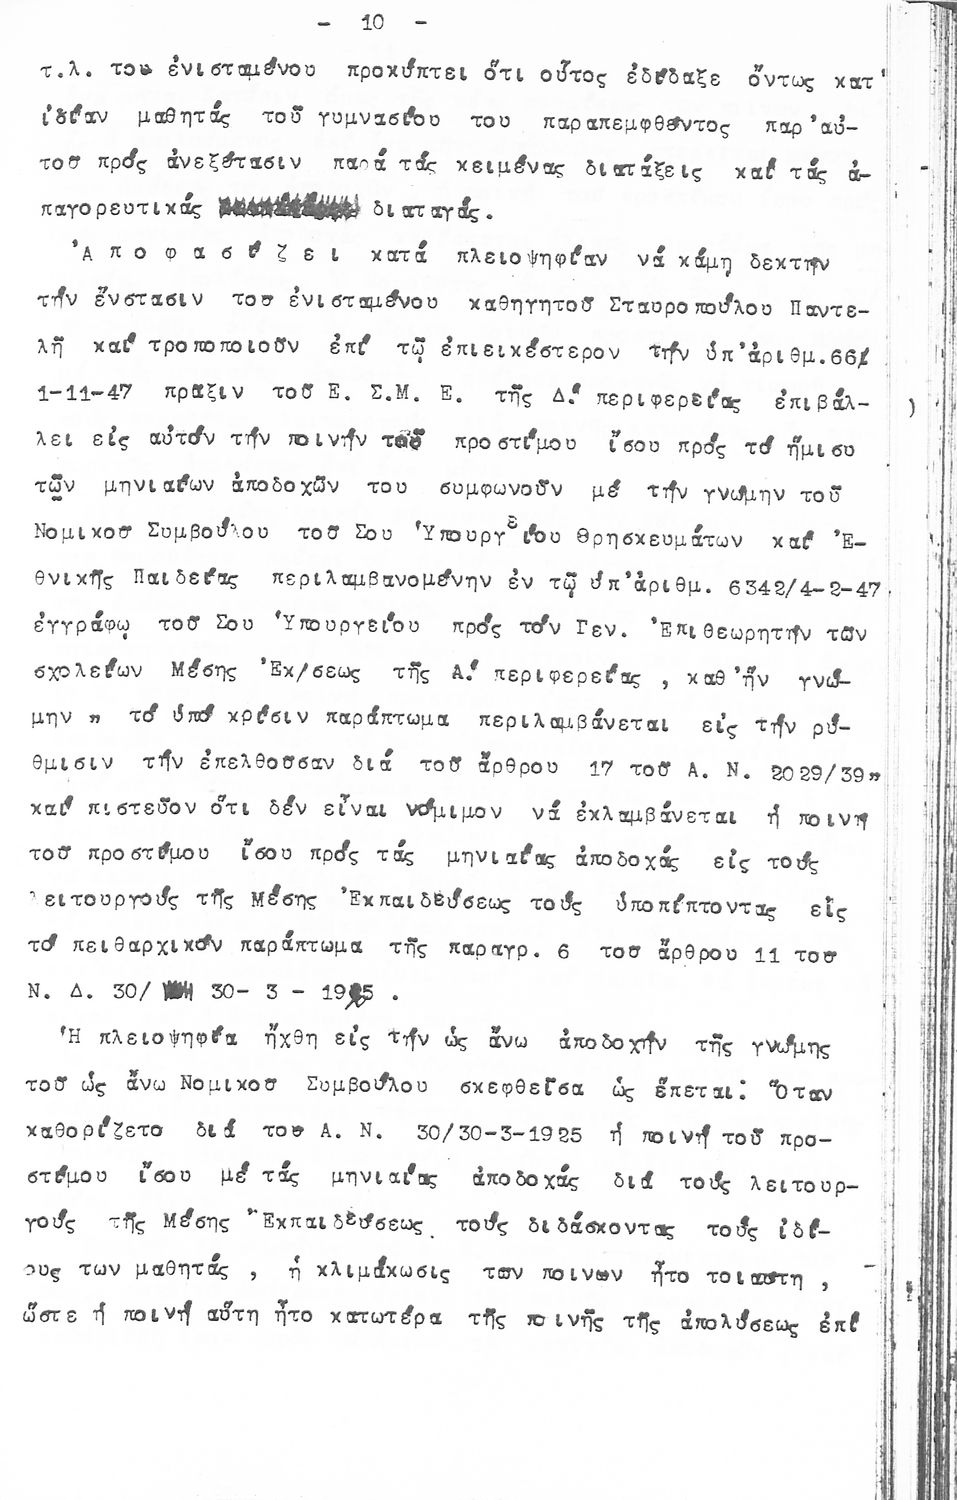 - 10 -
τ.λ. του ἐνισταμένου προκύπτει ὅτι οὗτος ἐδίδαξε ὄντως κατ'
ἰδίαν μαθητάς τοῦ γυμνασίου του παραπεμφθέντος παρ'αὐ-
τοῦ πρός ἀνεξέτασιν παρά τάς κειμένας διατάξεις καί τάς ἀ-
παγορευτικάς διαταγάς.
'Α π ο φ α σ ί ζ ε ι κατά πλειοψηφίαν νά κάμη δεκτήν
τήν ἔνστασιν τοῦ ἐνισταμένου καθηγητοῦ Σταυροπούλου Παντε-
λῆ καί τροποποιοῦν ἐπί τῷ ἐπιεικέστερον τήν ὑπ'ἀριθμ.66/
1-11-47 πρᾶξιν τοῦ Ε. Σ.Μ. Ε. τῆς Δ.' περιφερείας ἐπιβάλ-
λει εἰς αὐτόν τήν ποινήν τοῦ προστίμου ἴσου πρός τό ἥμισυ
τῶν μηνιαίων ἀποδοχῶν του συμφωνοῦν μέ τήν γνώμην τοῦ
Νομικοῦ Συμβούλου τοῦ Σου 'Υπουργείου Θρησκευμάτων καί 'Ε-
θνικῆς Παιδείας περιλαμβανομένην ἐν τῷ ὑπ'ἀριθμ. 6342/4-2-47.
ἐγγράφῳ τοῦ Σου 'Υπουργείου πρός τόν Γεν. 'Επιθεωρητήν τῶν
σχολείων Μέσης 'Εκ/σεως τῆς Α.' περιφερείας , καθ'ἥν γνώ-
μην " τό ὑπό κρίσιν παράπτωμα περιλαμβάνεται εἰς τήν ρύ-
θμισιν τήν ἐπελθοῦσαν διά τοῦ ἄρθρου 17 τοῦ Α. Ν. 2029/39"
καί πιστεῦον ὅτι δέν εἶναι νόμιμον νά ἐκλαμβάνεται ἡ ποινή
τοῦ προστίμου ἴσου πρός τάς μηνιαίας ἀποδοχάς εἰς τούς
λειτουργούς τῆς Μέσης 'Εκπαιδεύσεως τούς ὑποπίπτοντας εἰς
τό πειθαρχικόν παράπτωμα τῆς παραγρ. 6 τοῦ ἄρθρου 11 τοῦ
Ν. Δ. 30/ 30- 3 - 1925 .
'Η πλειοψηφία ἤχθη εἰς τήν ὡς ἄνω ἀποδοχήν τῆς γνώμης
τοῦ ὡς ἄνω Νομικοῦ Συμβούλου σκεφθεῖσα ὡς ἕπεται: Ὅταν
καθορίζετο διά τοῦ Α. Ν. 30/30-3-1925 ἡ ποινή τοῦ προ-
στίμου ἴσου μέ τάς μηνιαίας ἀποδοχάς διά τούς λειτουρ-
γούς τῆς Μέσης "Εκπαιδεύσεως τούς διδάσκοντας τούς ἰδί-
ους των μαθητάς , ἡ κλιμάκωσις τῶν ποινῶν ἦτο τοιαύτη ,
ὥστε ἡ ποινή αὕτη ἦτο κατωτέρα τῆς ποινῆς τῆς ἀπολύσεως ἐπί